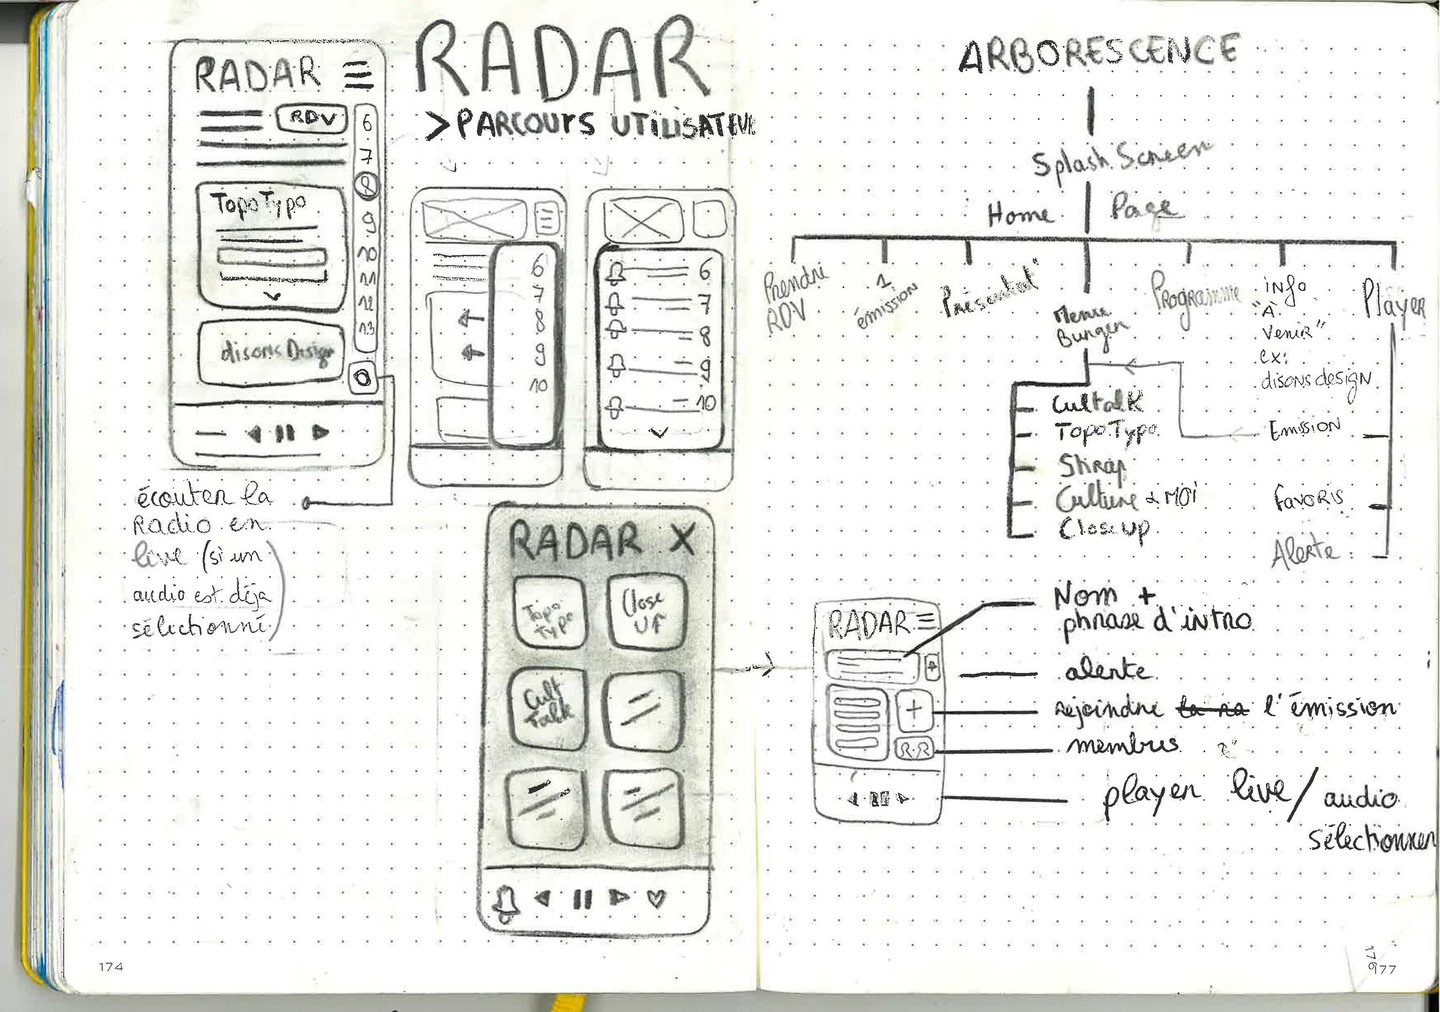 RADAR
RDV
6
7
8
9
10
11
12
13
TopoTypo
disons Design
écouter la
Radio en
live (si un
audio est déjà
sélectionné)
RADAR
> PARCOURS UTILISATEUR
6
7
8
9
10
6
7
8
9
10
RADAR X
Topo
Typo
Close
UP
Cult
Talk
174
ARBORESCENCE
Splash Screen
Home Page
Prendre
RDV
1
émission
Présentat°
Menu
Burger
Programme
info
"À
venir"
ex:
disons design
Player
Cultalk
TopoTypo
Shrap
Culture & MOI
Close up
Emission
Favoris
Alerte
RADAR
+
R.R
Nom +
phrase d'intro
alerte
rejoindre la ra l'émission
membres
player live / audio
sélectionner
177